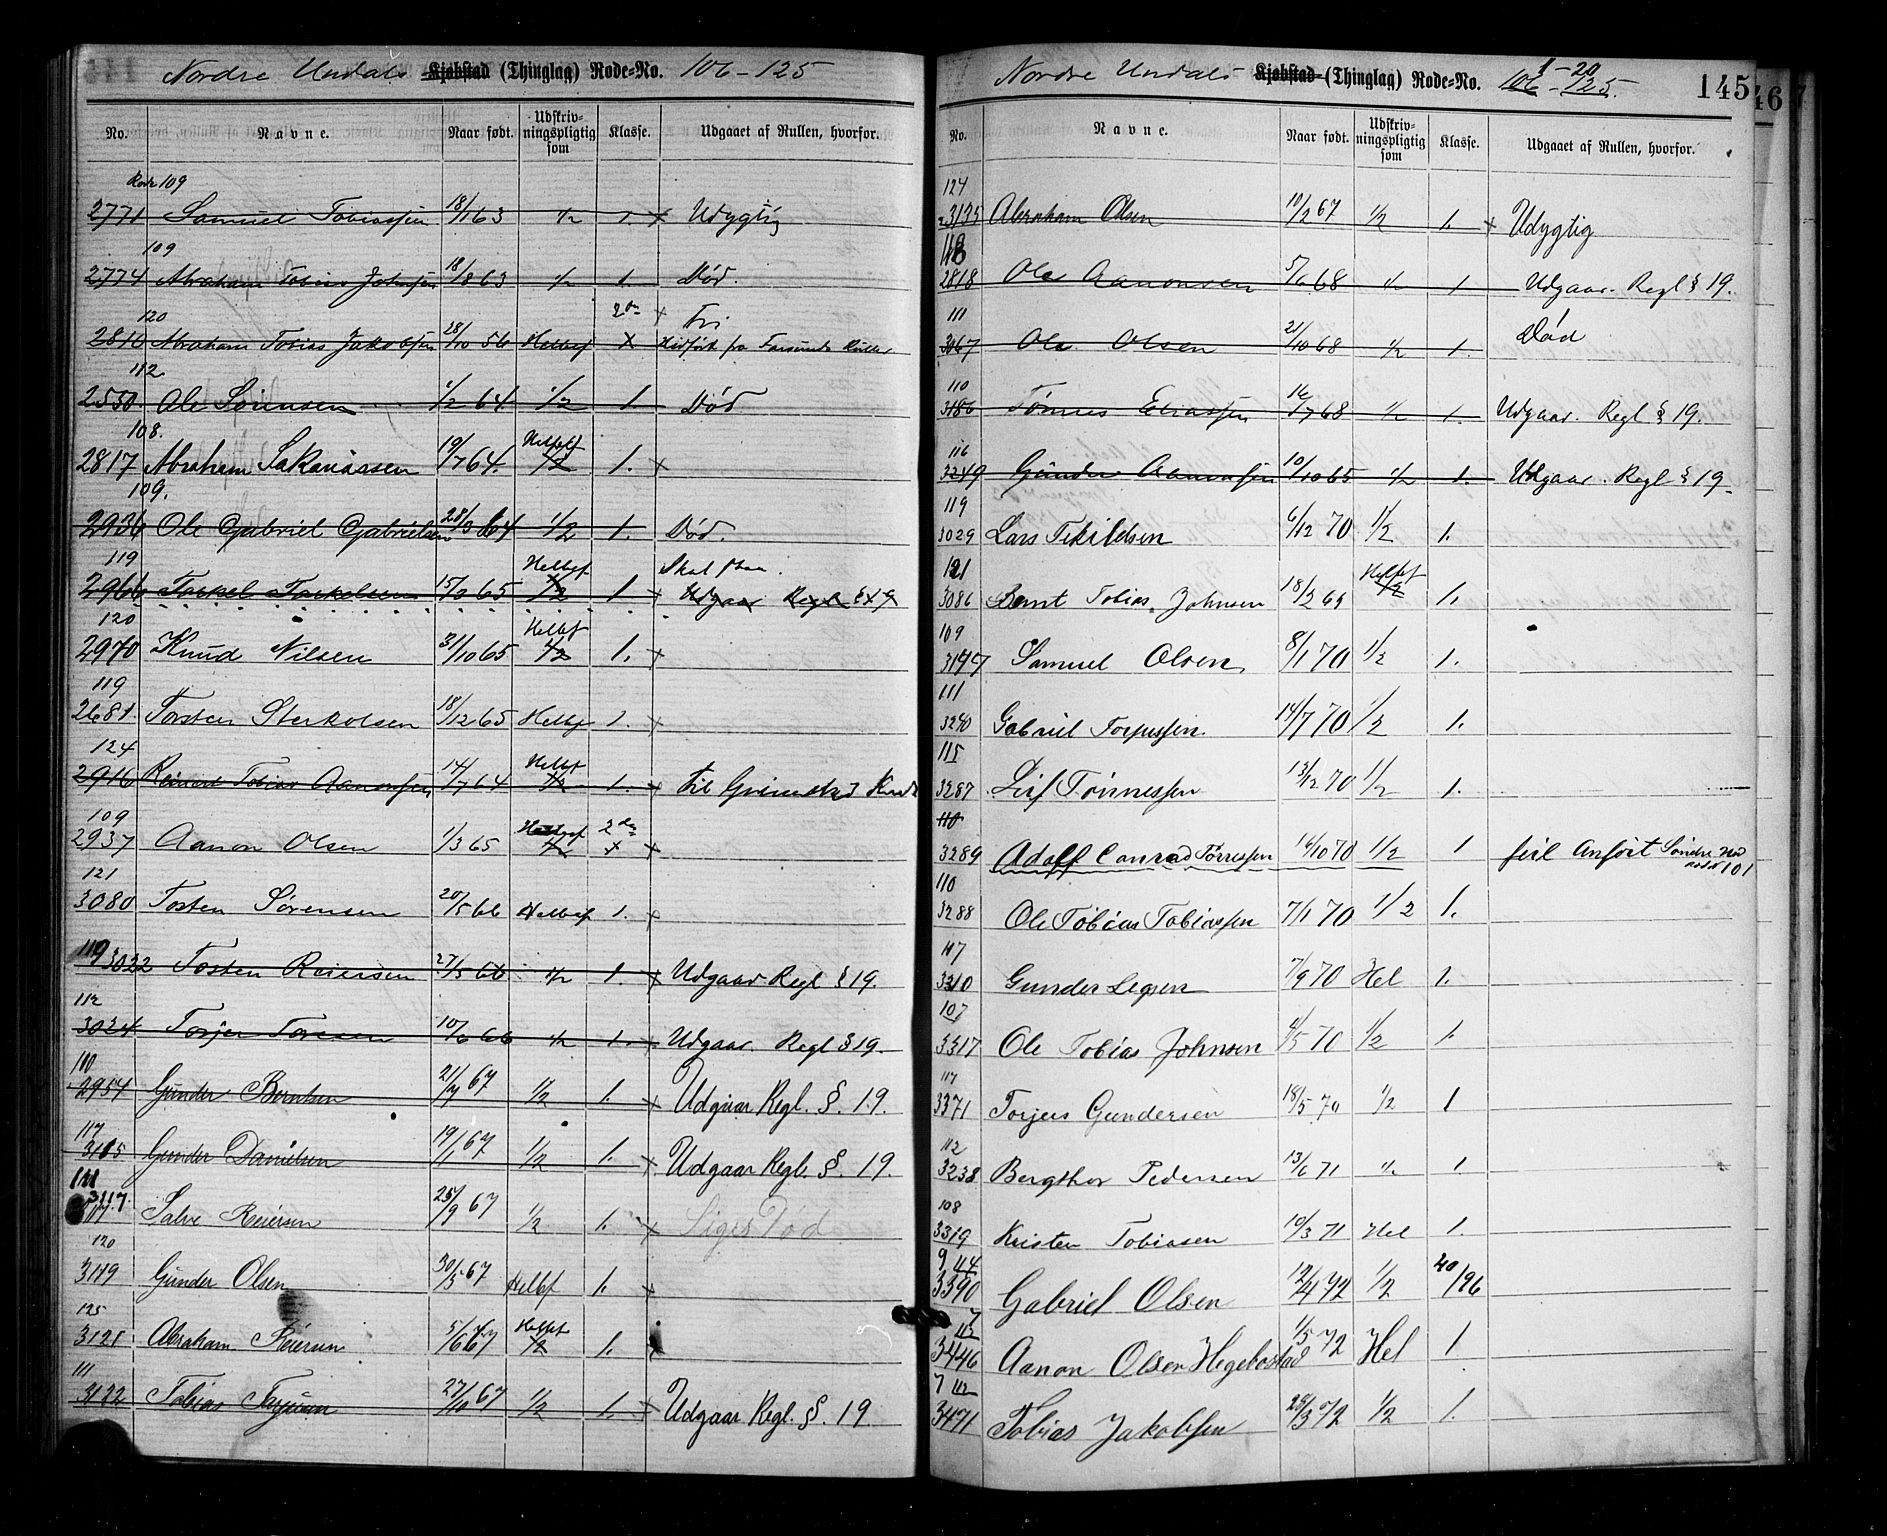 Nordre Undals Kjøbstad (Thinglag) Rode=No. 106-125
No. Navne. Naar født. Udskriv-ningspligtig som Klasse. Udgaaet af Rullen, hvorfor.
Rode 109
2771 Samuel Tobiassen 18/1 63 1/2 1. x Udygtig
109
2774 Abraham Tobias Johnsen 18/8 63 1/2 1. Død.
120 2den x Fri
2810 Abraham Tobias Jakobsen 28/10 56 Helbef x Hidført fra Farsunds Rulle
112.
2550. Ole Sørensen 1/2 64 1/2 1 Død
108. Helbef
2817 Abraham Sakariassen 19/7 64. 1/2 1. x
109.
2936 Ole Gabriel Gabrielsen 28/3 64 1/2 1. Død.
119 Helbef Skal staa.
2966 Torkel Torkelsen 15/3 65 1/2 1 x Udgaar Regl § 19
120 Helbef
2970 Knud Nilsen 31/10 65 1/2 1. x
119
2681 Torsten Sterkolsen 18/12 65 Helbef 1. x
124 Helbef
2916 Reinert Tobias Aanonsen 14/7 64 1/2 1. x til Grimstad Kreds
109 Helbef 2den
2937 Aanon Olsen 1/3 65 1/2 x x
121
3080 Tosten Sørensen 20/5 66 Helbef 1. x
119 3022 Tosten Reiersen 27/5 66 1/2 1. x Udgaar Regl § 19.
112
3024 Torjer Toresen 10/6 66 1/2 1. x Udgaar. Regl § 19.
110
2954 Gunder Berntsen 21/7 67 1/2 1. x Udgaar Regl. §. 19.
117
3115 Gunder Danielsen 19/1 67 1/2 1. x Udgaar Regl. §. 19.
121
3117. Salve Reiersen 25/9 67 1/2 1. x Siges Død
120
3119 Gunder Olsen 30/5 67 Helbf 1. x
125 Helbef
3121 Abraham Reiersen 5/6 67 1/2 1. x
111
3122 Tobias Torjusen 27/10 67 1/2 1. x Udgaar Regl. §. 19.
Nordre Undals Kjøbstad (Thinglag) Rode=No. 106-125. 1-20 145
46
No. Navne. Naar født. Udskriv-ningspligtig som Klasse. Udgaaet af Rullen, hvorfor.
124
3135 Abraham Olsen 10/2 67 1/2 1. x Udygtig
118
2818 Ole Aanonsen 5/6 68 1/2 1. Udgaar. Regl § 19.
111
3067 Ole Olsen 21/10 68 1/2 1. Død
110
3186 Tønnes Eliassen 16/7 68 1/2 1. Udgaar. Regl § 19.
116
3249 Gunder Aanonsen 10/10 65 1/2 1. Udgaar. Regl § 19.
119
3029 Lars Tekildsen 6/12 70 1/2 1.
121 Helbef
3086 Bernt Tobias Johnsen 18/2 69 1/2 1.
109
3197 Samuel Olsen 8/1 70 1/2 1.
111
3240 Gabriel Torjussen 14/7 70 1/2 1.
115
3287 Leif Tønnessen 13/12 70 1/2 1.
110
3289 Adolf Conrad Tørressen 16/10 70 1/2 1 feil Anført Søndre Und rode 101
110
3288 Ole Tobias Tobiassen 7/1 70 1/2 1.
117
3310 Gunder Legsen 7/9 70 Hel 1.
107
3317 Ole Tobias Johnsen 4/5 70 1/2 1.
117
3371 Torjus Gundersen 18/5 70 1/2 1
112
3238 Bergthor Pedersen 13/6 71 1/2 1
108
3319 Kristen Tobiasen 10/3 71 Hel 1.
9 114
3390 Gabriel Olsen 12/4 72 1/2 40/96
7 112
3446 Aanon Olsen Hegebostad 1/5 72 Hel 1
7 112
3471 Tobias Jakobsen 28/3 72 1/2 1.